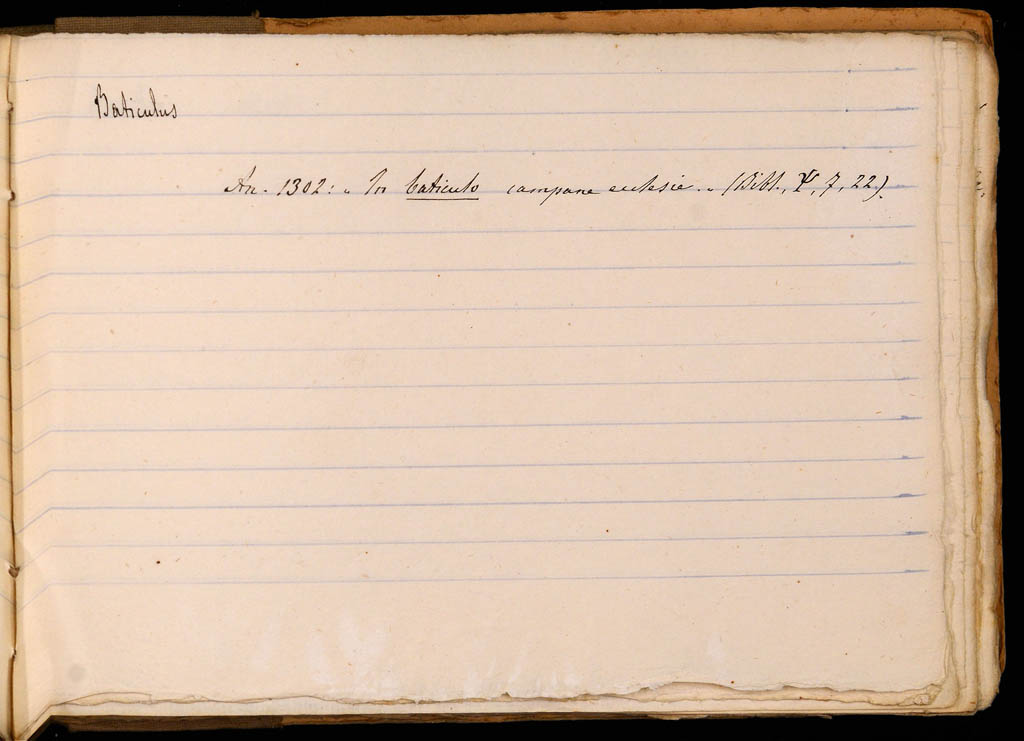 Baticulus
An. 1302: „ In baticulo campane ecclesie „ (Bibl., Ψ, 7, 22).